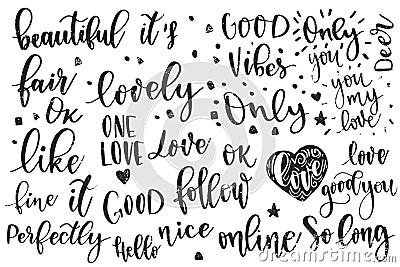 beautiful it's
GOOD Vibes
Only you
you my love
Deer
fair
OK
lovely
Only
like
ONE LOVE
Love
OK
love
love
good you
fine it
GOOD
follow
Perfectly
Hello
nice
online
So long
dreamstime